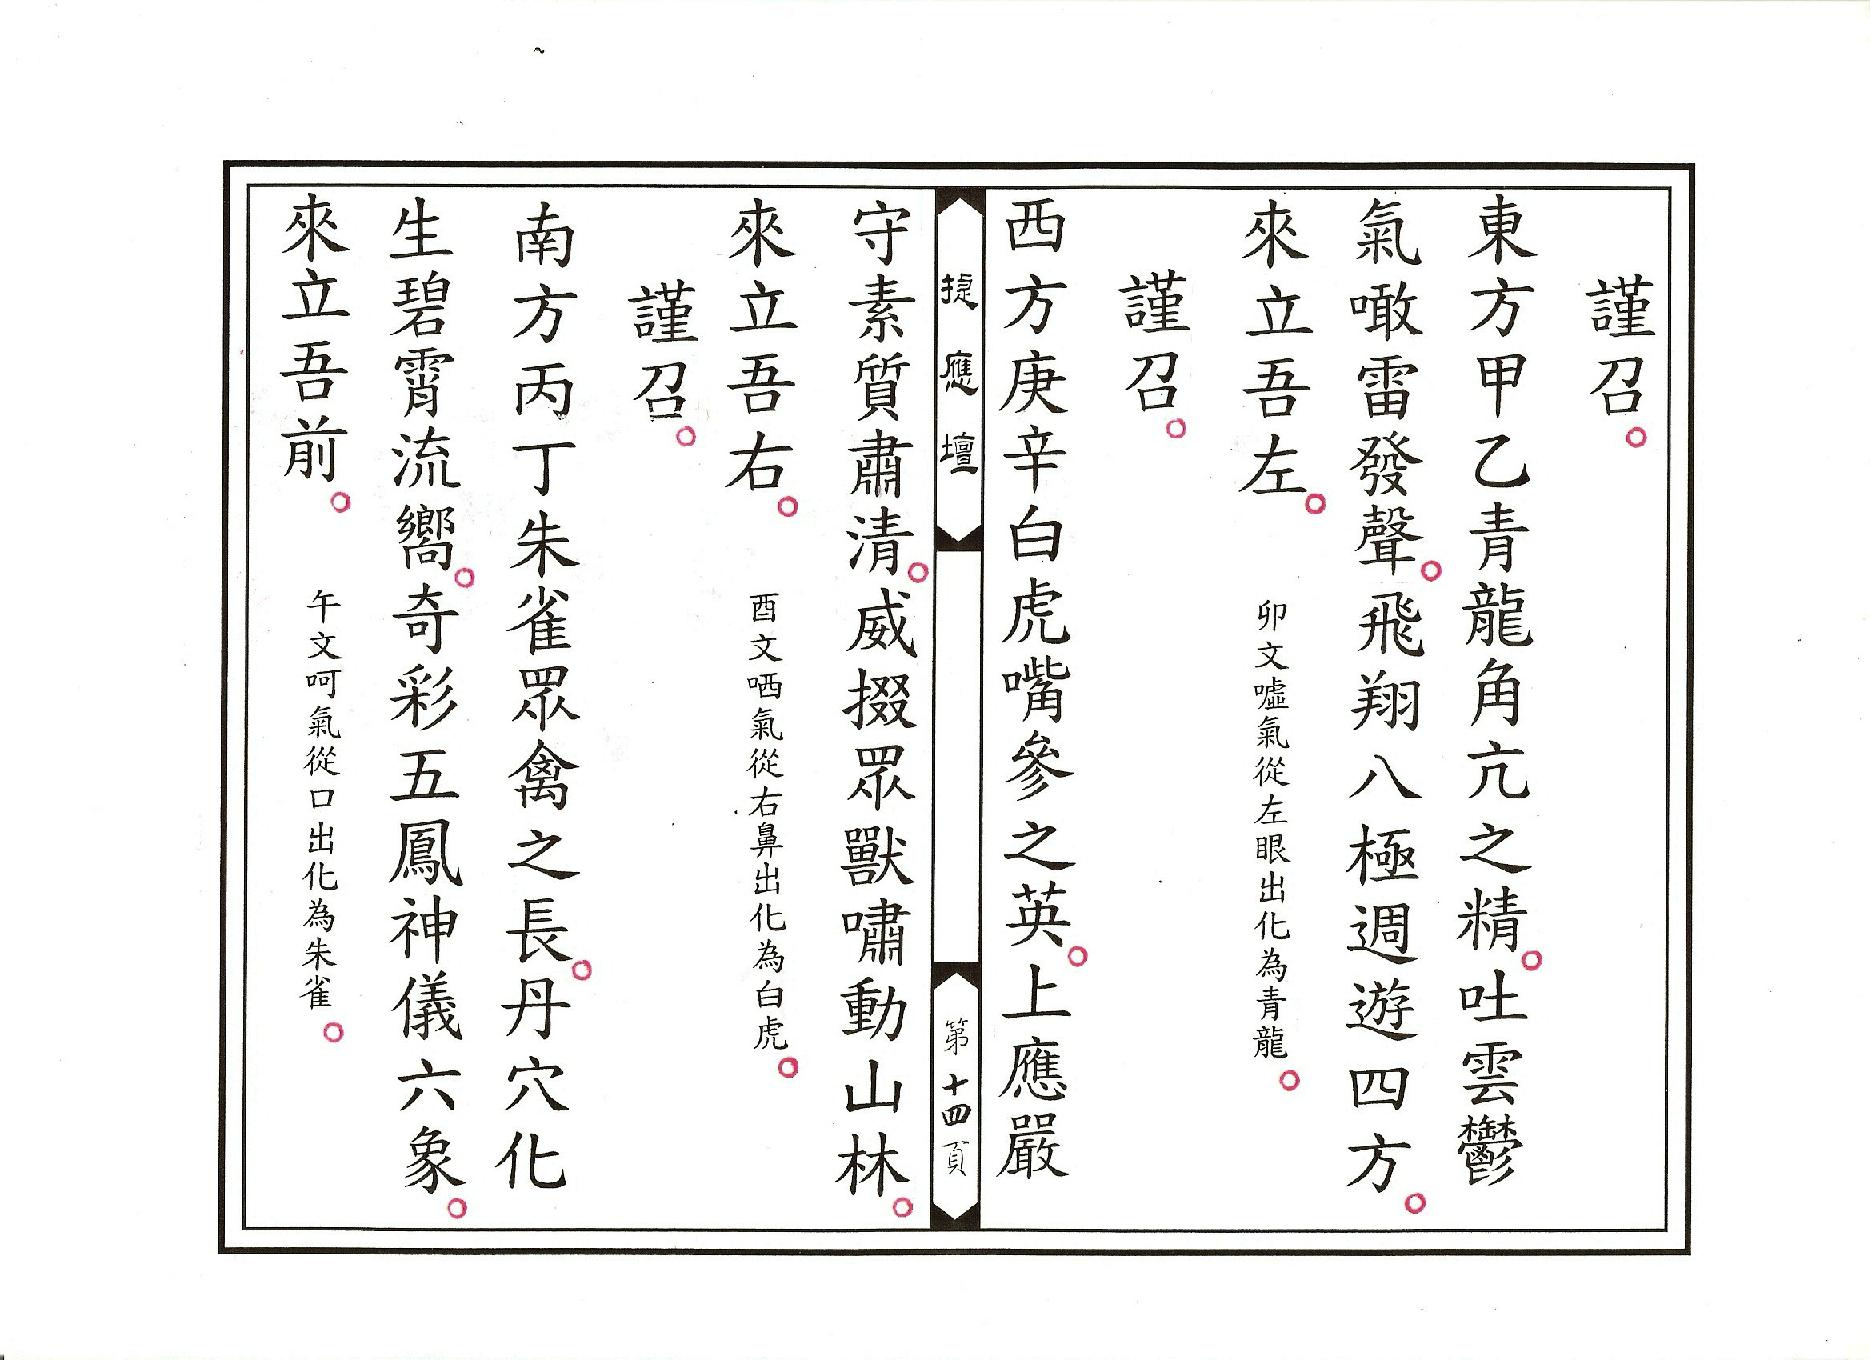 謹召。
東方甲乙青龍角亢之精。吐雲鬱
氣噉雷發聲。飛翔八極週遊四方。
來立吾左。 卯文噓氣從左眼出化為青龍。
謹召。
西方庚辛白虎嘴參之英。上應嚴
提應壇
第十四頁
守素質肅清。威掇眾獸嘯動山林。
來立吾右。 酉文哂氣從右鼻出化為白虎。
謹召。
南方丙丁朱雀眾禽之長。丹穴化
生碧霄流嚮。奇彩五鳳神儀六象。
來立吾前。 午文呵氣從口出化為朱雀。